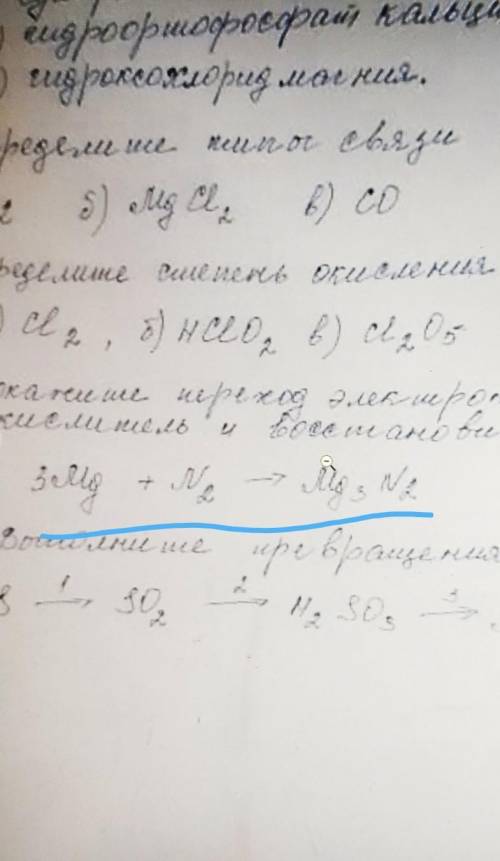 ) гидроортофосфат кальци
) гидроксохлорид магния.
ределите типы связи
2 б) MgCl₂ в) CO
ределите степень окисления
) Cl₂, б) HClO₂ в) Cl₂O₅
окажите переход электро
кислитель и восстанови
3Mg + N₂ → Mg₃N₂
Выполните превращения
S 1→ SO₂ 2→ H₂SO₃ 3→